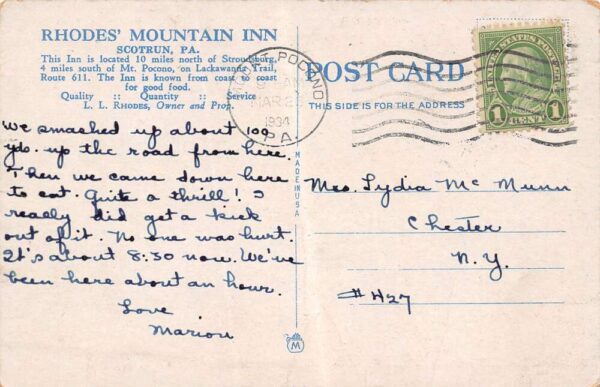 RHODES' MOUNTAIN INN
SCOTRUN, PA.
This Inn is located 10 miles north of Stroudsburg,
4 miles south of Mt. Pocono, on Lackawanna Trail,
Route 611. The Inn is known from coast to coast
for good food.
Quality :: Quantity :: Service
L. L. RHODES, Owner and Prop.
We smashed up about 100
yds. up the road from here.
Then we came down here
to eat. Quite a thrill! I
really did get a kick
out of it. No one was hurt.
It's about 8:30 now. We've
been here about an hour.
Love
Marion
MADE IN USA
M
POST CARD
THIS SIDE IS FOR THE ADDRESS
MOUNT POCONO
MAR 2
1934
PA.
UNITED STATES POSTAGE
1 CENT 1
Mrs. Lydia Mc Munn
Chester
N.Y.
#427